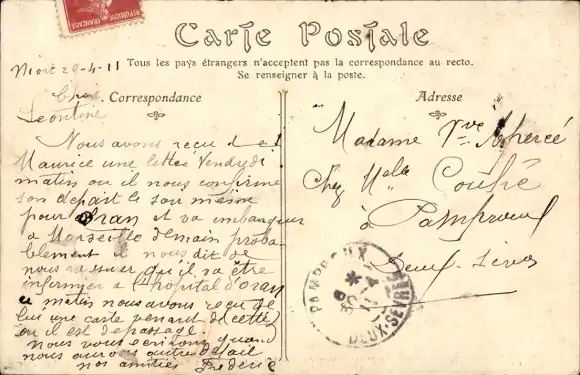 RÉPUBLIQUE FRANÇAISE
Carte Postale
Tous les pays étrangers n'acceptent pas la correspondance au recto.
Se renseigner à la poste.
Correspondance
Adresse
Niort 29-4-11
Léontine
Nous avons recu de
Maurice une lettre Vendredi
matin ou il nous confirme
son départ le soir même
pour Oran et va embarquer
a Marseille demain proba
blement il nous dit de
nous rassurer qu'il va être
infirmier a l'hopital d'oran
ce matin nous avons reçu de
lui une carte venant de Cette
ou il est de passage
nous vous ecrirons quand
nous aurons autre détail
nos amitiés Frédéric
Madame Vve
Chez Melle
à Pamproux
Deux-Sèvres
PAMPROUX
DEUX-SEVRES